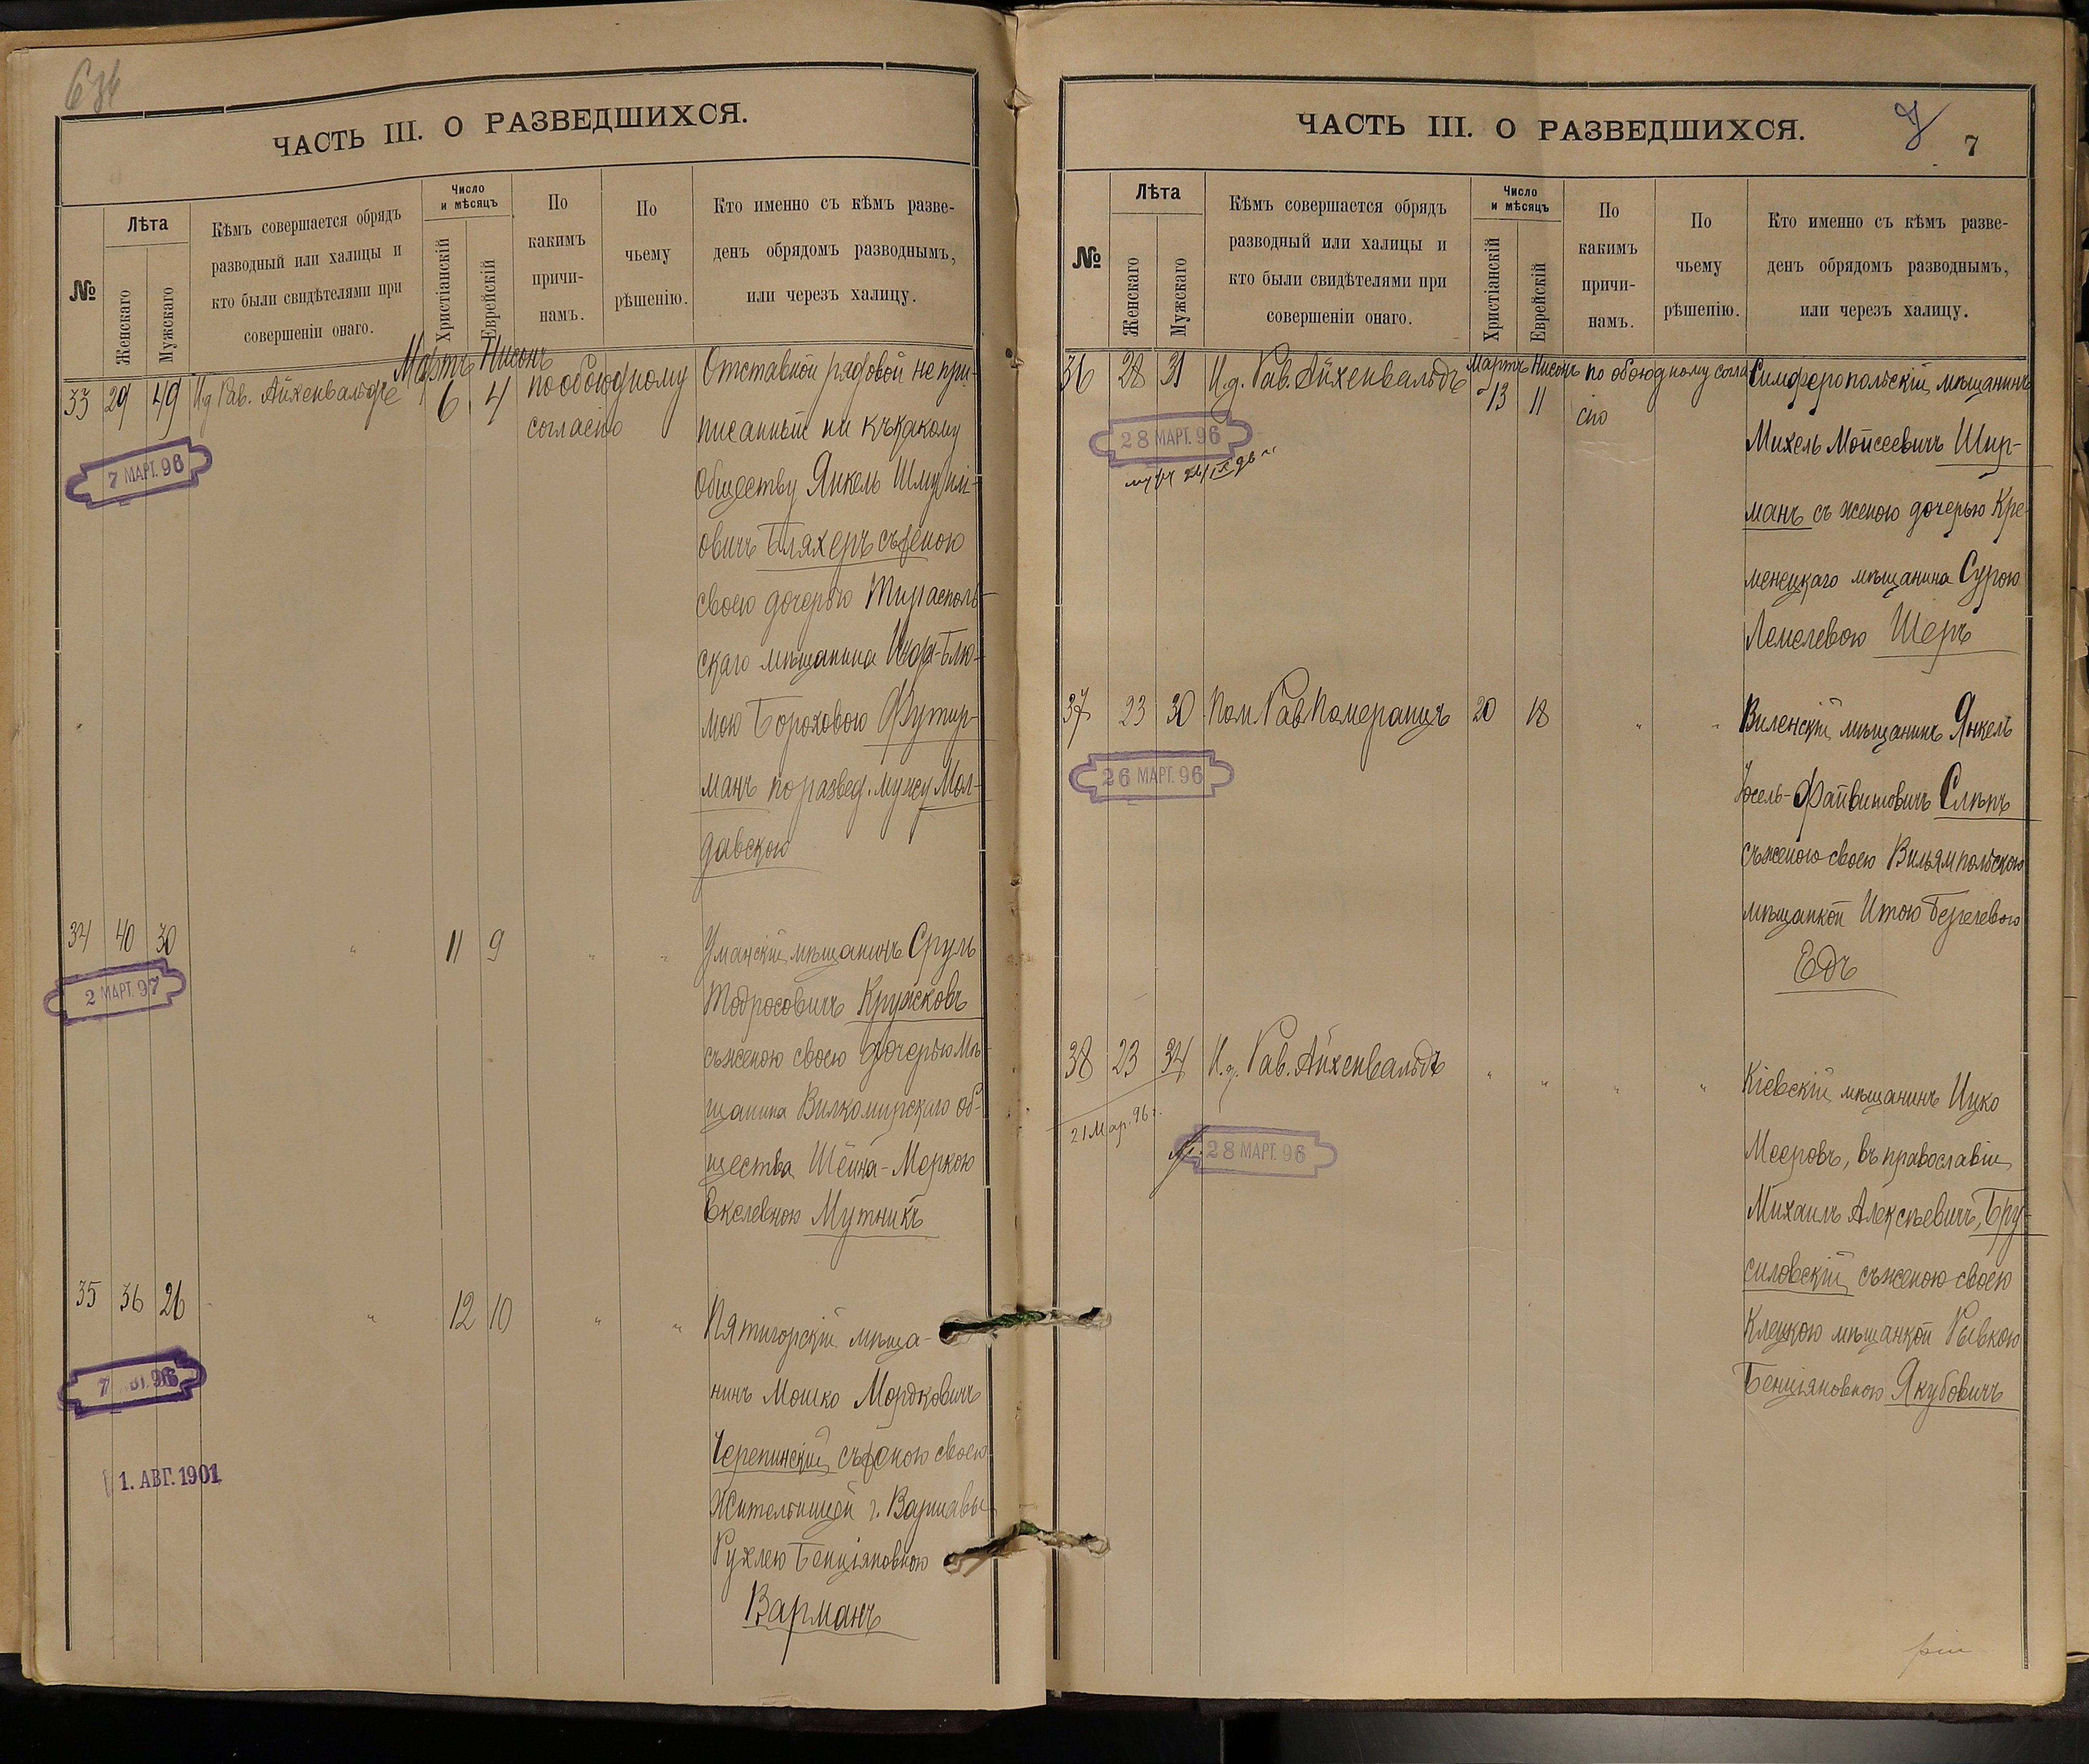 634
ЧАСТЬ III. О РАЗВЕДШИХСЯ.
№
Лѣта
Женскаго
Мужскаго
Кѣмъ совершается обрядъ
разводный или халицы и
кто были свидѣтелями при
совершеніи онаго.
Число
и мѣсяцъ
Христіанскій
Еврейскій
По
какимъ
причи-
намъ.
По
чьему
рѣшенію.
Кто именно съ кѣмъ разве-
денъ обрядомъ разводнымъ,
или черезъ халицу.
Мартъ Нисонъ
33 29 49 И.д. Рав. Айхенвальдъ 6 4 по обоюдному
согласію
7 МАРТ. 96
Отставной рядовой не при-
писанный ни къ какому
обществу Янкель Шмуйли-
овичъ Бляхеръ съ женою
своею дочерью Тирасполь-
скаго мѣщанина Блю-
мою Бороховою Футир-
манъ по развед. мужу Мол-
давскою
34 40 30 " 11 9 " "
2 МАРТ. 97
Уманскій мѣщанинъ Сруль
Тодросовичъ Кружковъ
съ женою своею дочерью мѣ-
щанина Вилкомирскаго об-
щества Шейна-Меркою
Мутникъ
35 36 26 " 12 10 " "
7 96
1. АВГ. 1901
Пятигорскій мѣща-
нинъ Мошко Мордковичъ
Черепинскій съ женою своею
жительницей г. Варшавы
Рухлею Бенціяновною
Варманъ
ЧАСТЬ III. О РАЗВЕДШИХСЯ.
7
№
Лѣта
Женскаго
Мужскаго
Кѣмъ совершается обрядъ
разводный или халицы и
кто были свидѣтелями при
совершеніи онаго.
Число
и мѣсяцъ
Христіанскій
Еврейскій
По
какимъ
причи-
намъ.
По
чьему
рѣшенію.
Кто именно съ кѣмъ разве-
денъ обрядомъ разводнымъ,
или черезъ халицу.
Мартъ Нисонъ
36 28 31 И.д. Рав. Айхенвальдъ 13 11 по обоюдному согла
сію
28 МАРТ. 96
Симферопольскій мѣщанинъ
Михель Мойсеевичъ Шир-
манъ съ женою дочерью Кре-
менецкаго мѣщанина Сурою
Лемелевою Шеръ
37 23 30 Пом. Рав. Померанцъ 20 18 " "
26 МАРТ. 96
Виленскій мѣщанинъ Янкель
Іосель-Файвишовичъ Слѣпъ
съ женою своею Вильямпольскою
мѣщанкой Итою Берелевою
Едъ
38 23 34 И.д. Рав. Айхенвальдъ " " " "
21 Мар. 96 г.
28 МАРТ. 96
Кіевскій мѣщанинъ Ицко
Мееровъ, въ православіи
Михаилъ Алексѣевичъ, Бру-
силовскій съ женою своею
Клецкою мѣщанкой Рывкою
Бенціяновною Якубовичъ